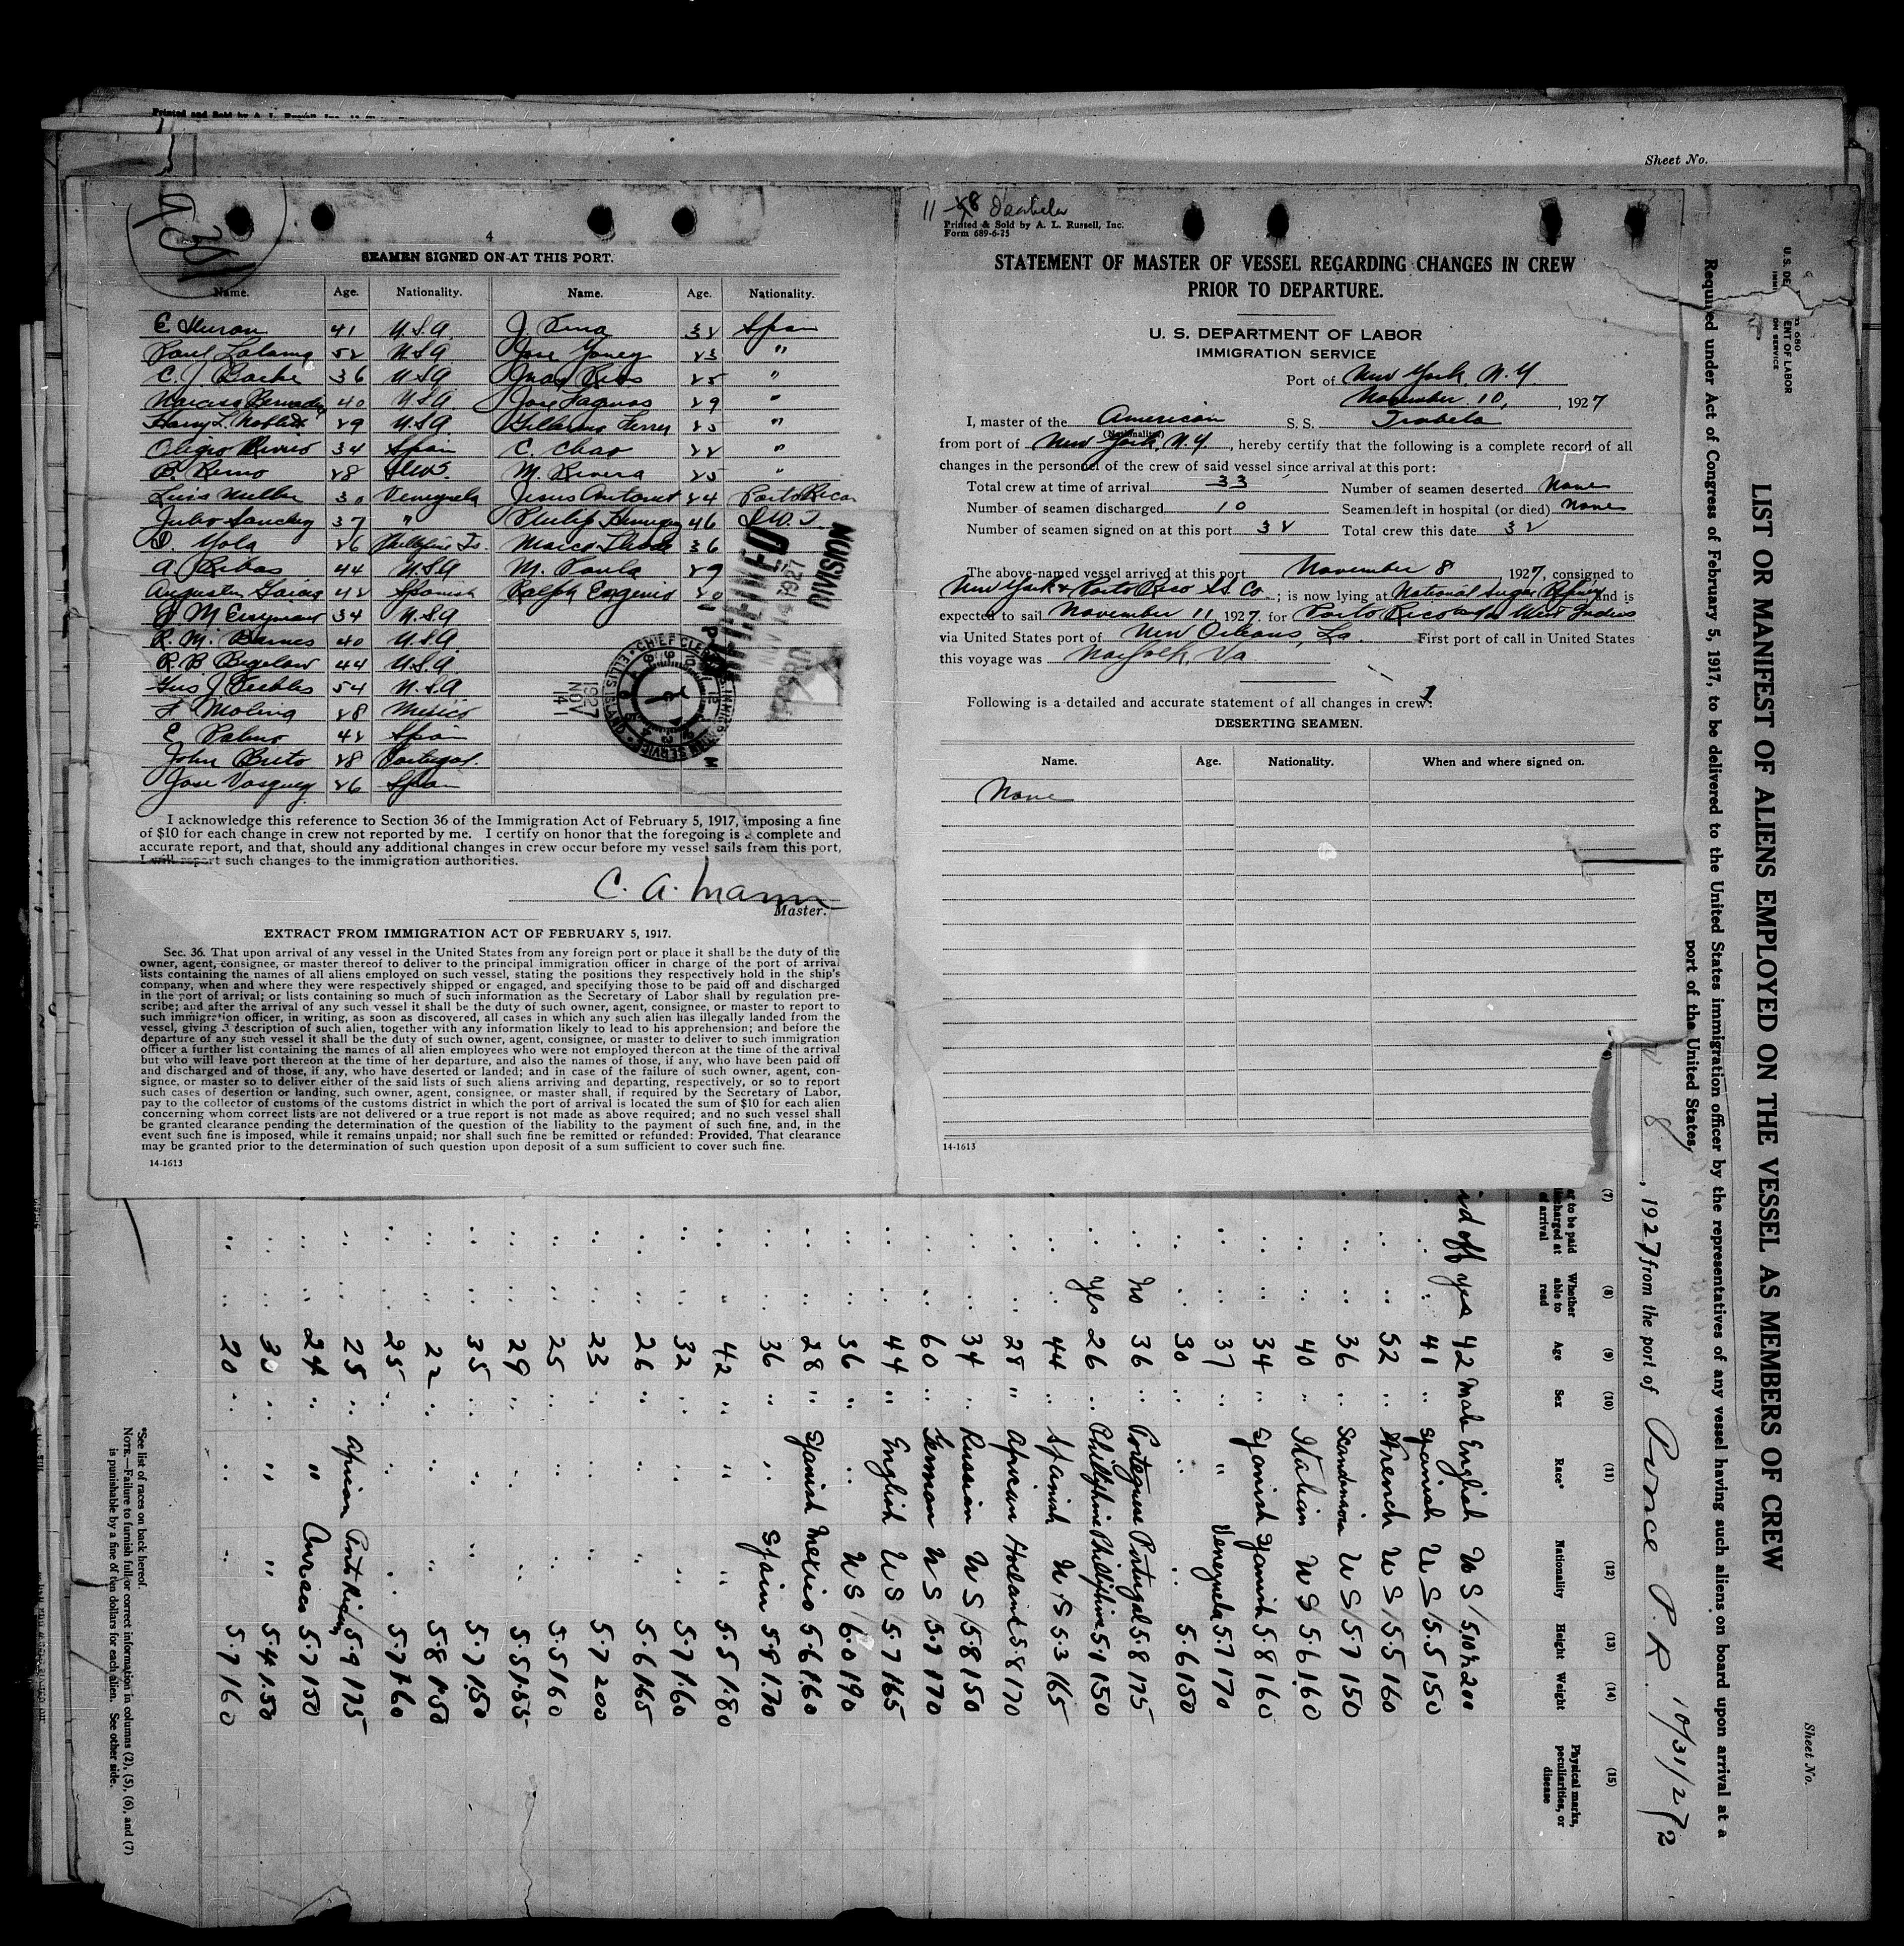 Printed and Sold by A. L. Russell, Inc.
Sheet No.
4
SEAMEN SIGNED ON AT THIS PORT.
Name. Age. Nationality. Name. Age. Nationality.
41 U.S.A. J. 32 Spain
Paul 52 U.S.A. Jose 23 "
C. J. 36 U.S.A. Juan Rios 25 "
Narciso 40 U.S.A. Jose 29 "
Harry L. 29 U.S.A. Ferrer 25 "
34 Spain C. Chao 22 "
28 M. Rivera 25 "
Luis 30 Venezuela Jesus 24 Porto Rico
Julio Sanchez 37 " Philip 46
26 Phillipine Is. 36
A. Ribas 44 U.S.A. M. Paula 29
Augustin 42 Spanish Ralph Eugenio 20
34 U.S.A.
R. M. Barnes 40 U.S.A.
R B Bigelow 44 U.S.A.
Gus J Peebles 54 U.S.A.
F Molina 28 Mexico
E 42 Spain
John Brito 28 Portugal.
Jose Vasquez 26 Spain
NOV 14 1927
DIVISION
CHIEF CLERK
ELLIS ISLAND
1927 NOV 14
I acknowledge this reference to Section 36 of the Immigration Act of February 5, 1917, imposing a fine
of $10 for each change in crew not reported by me. I certify on honor that the foregoing is a complete and
accurate report, and that, should any additional changes in crew occur before my vessel sails from this port,
I will report such changes to the immigration authorities.
C. A. Mann
Master.
EXTRACT FROM IMMIGRATION ACT OF FEBRUARY 5, 1917.
Sec. 36. That upon arrival of any vessel in the United States from any foreign port or place it shall be the duty of the
owner, agent, consignee, or master thereof to deliver to the principal immigration officer in charge of the port of arrival
lists containing the names of all aliens employed on such vessel, stating the positions they respectively hold in the ship's
company, when and where they were respectively shipped or engaged, and specifying those to be paid off and discharged
in the port of arrival; or lists containing so much of such information as the Secretary of Labor shall by regulation pre-
scribe; and after the arrival of any such vessel it shall be the duty of such owner, agent, consignee, or master to report to
such immigration officer, in writing, as soon as discovered, all cases in which any such alien has illegally landed from the
vessel, giving a description of such alien, together with any information likely to lead to his apprehension; and before the
departure of any such vessel it shall be the duty of such owner, agent, consignee, or master to deliver to such immigration
officer a further list containing the names of all alien employees who were not employed thereon at the time of the arrival
but who will leave port thereon at the time of her departure, and also the names of those, if any, who have been paid off
and discharged and of those, if any, who have deserted or landed; and in case of the failure of such owner, agent, con-
signee, or master so to deliver either of the said lists of such aliens arriving and departing, respectively, or so to report
such cases of desertion or landing, such owner, agent, consignee, or master shall, if required by the Secretary of Labor,
pay to the collector of customs of the customs district in which the port of arrival is located the sum of $10 for each alien
concerning whom correct lists are not delivered or a true report is not made as above required; and no such vessel shall
be granted clearance pending the determination of the question of the liability to the payment of such fine, and, in the
event such fine is imposed, while it remains unpaid; nor shall such fine be remitted or refunded: Provided, That clearance
may be granted prior to the determination of such question upon deposit of a sum sufficient to cover such fine.
14-1613
11-8 Isabela
Printed & Sold by A. L. Russell, Inc.
Form 689-6-25
STATEMENT OF MASTER OF VESSEL REGARDING CHANGES IN CREW
PRIOR TO DEPARTURE.
U. S. DEPARTMENT OF LABOR
IMMIGRATION SERVICE
Port of New York, N.Y.
November 10, , 1927
I, master of the American S. S. Isabela
(Nationality)
from port of New York, N.Y. , hereby certify that the following is a complete record of all
changes in the personnel of the crew of said vessel since arrival at this port:
Total crew at time of arrival 33 Number of seamen deserted None
Number of seamen discharged 10 Seamen left in hospital (or died) None
Number of seamen signed on at this port 32 Total crew this date 32
The above-named vessel arrived at this port November 8 , 1927, consigned to
New York & Porto Rico SS. Co. ; is now lying at National Sugar Refinery and is
expected to sail November 11, 1927. for Porto Rico West Indies
via United States port of New Orleans, La. First port of call in United States
this voyage was Norfolk, Va
Following is a detailed and accurate statement of all changes in crew:
DESERTING SEAMEN.
Name. Age. Nationality. When and where signed on.
None
14-1613
Sheet No.
U.S. DEPARTMENT OF LABOR
IMMIGRATION SERVICE
LIST OR MANIFEST OF ALIENS EMPLOYED ON THE VESSEL AS MEMBERS OF CREW
Required under Act of Congress of February 5, 1917, to be delivered to the United States immigration officer by the representatives of any vessel having such aliens on board upon arrival at a
port of the United States
8 , 1927 from the port of Ponce P.R. 10/31/27
(7) (8) (9) (10) (11) (12) (13) (14) (15)
Whether able to read Age Sex Race* Nationality Height Weight Physical marks, peculiarities, or disease
off yes 42 Male English U S 5.10½ 200
" " 41 " Spanish U S 5.5 150
" " 52 " French U S 5.5 160
" " 36 " Scandinavian U S 5.7 150
" " 40 " Italian U S 5.6 160
" " 34 " Spanish Spanish 5.8 160
" " 37 " " Venezuela 5.7 170
" " 30 " " " 5.6 150
" no 36 " Portuguese Portugal 5.8 175
" yes 26 " Phillipine Phillipine 5.1 150
" " 44 " Spanish U.S 5.3 165
" " 28 " African Holland 5.8 170
" " 34 " Russian U S 5.8 150
" " 60 " German U S 5.7 170
" " 44 " English U S 5.7 165
" " 36 " " U S 6.0 190
" " 28 " Spanish Mexico 5.6 160
" " 36 " " Spain 5.8 170
" " 42 " " " 5.5 180
" " 32 " " " 5.7 160
" " 26 " " " 5.6 165
" " 23 " " " 5.7 200
" " 25 " " " 5.5 160
" " 29 " " " 5.5 155
" " 35 " " " 5.7 150
" " 22 " " " 5.8 150
" " 25 " " " 5.7 160
" " 25 " African Porto Rican 5.9 175
" " 24 " " Curacao 5.7 150
" " 30 " " " 5.4 150
" " 20 " " " 5.7 160
*See list of races on back hereof.
NOTE.—Failure to furnish full or correct information in columns (2), (5), (6), and (7)
is punishable by a fine of ten dollars for each alien. See other side.